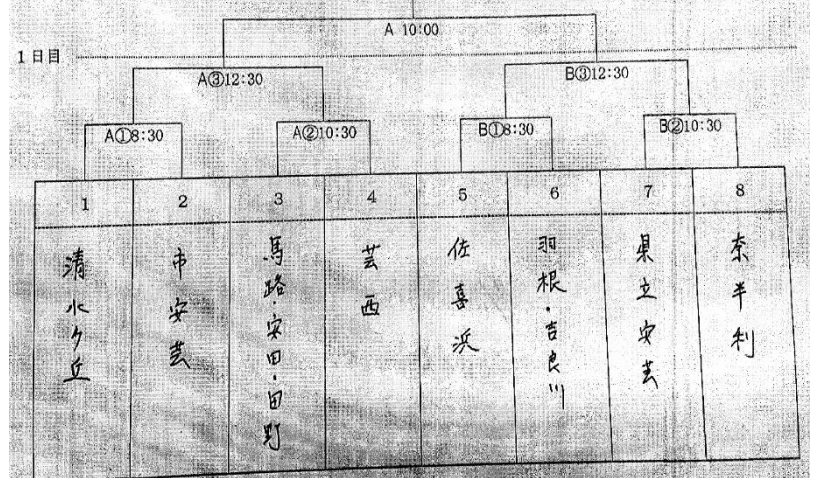 A 10:00
1日目
A③12:30
B③12:30
A①8:30
A②10:30
B①8:30
B②10:30
1
2
3
4
5
6
7
8
清水ケ丘
市安芸
馬路・安田・田野
芸西
佐喜浜
羽根・吉良川
県立安芸
奈半利